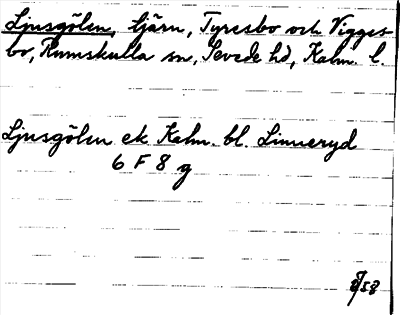 Ljusgölen, tjärn, Tyresbo och Vigges-
bo, Rumskulla sn, Sevede hd, Kalm. l.
Ljusgölen ek Kalm. bl. Linneryd
6 F 8 g